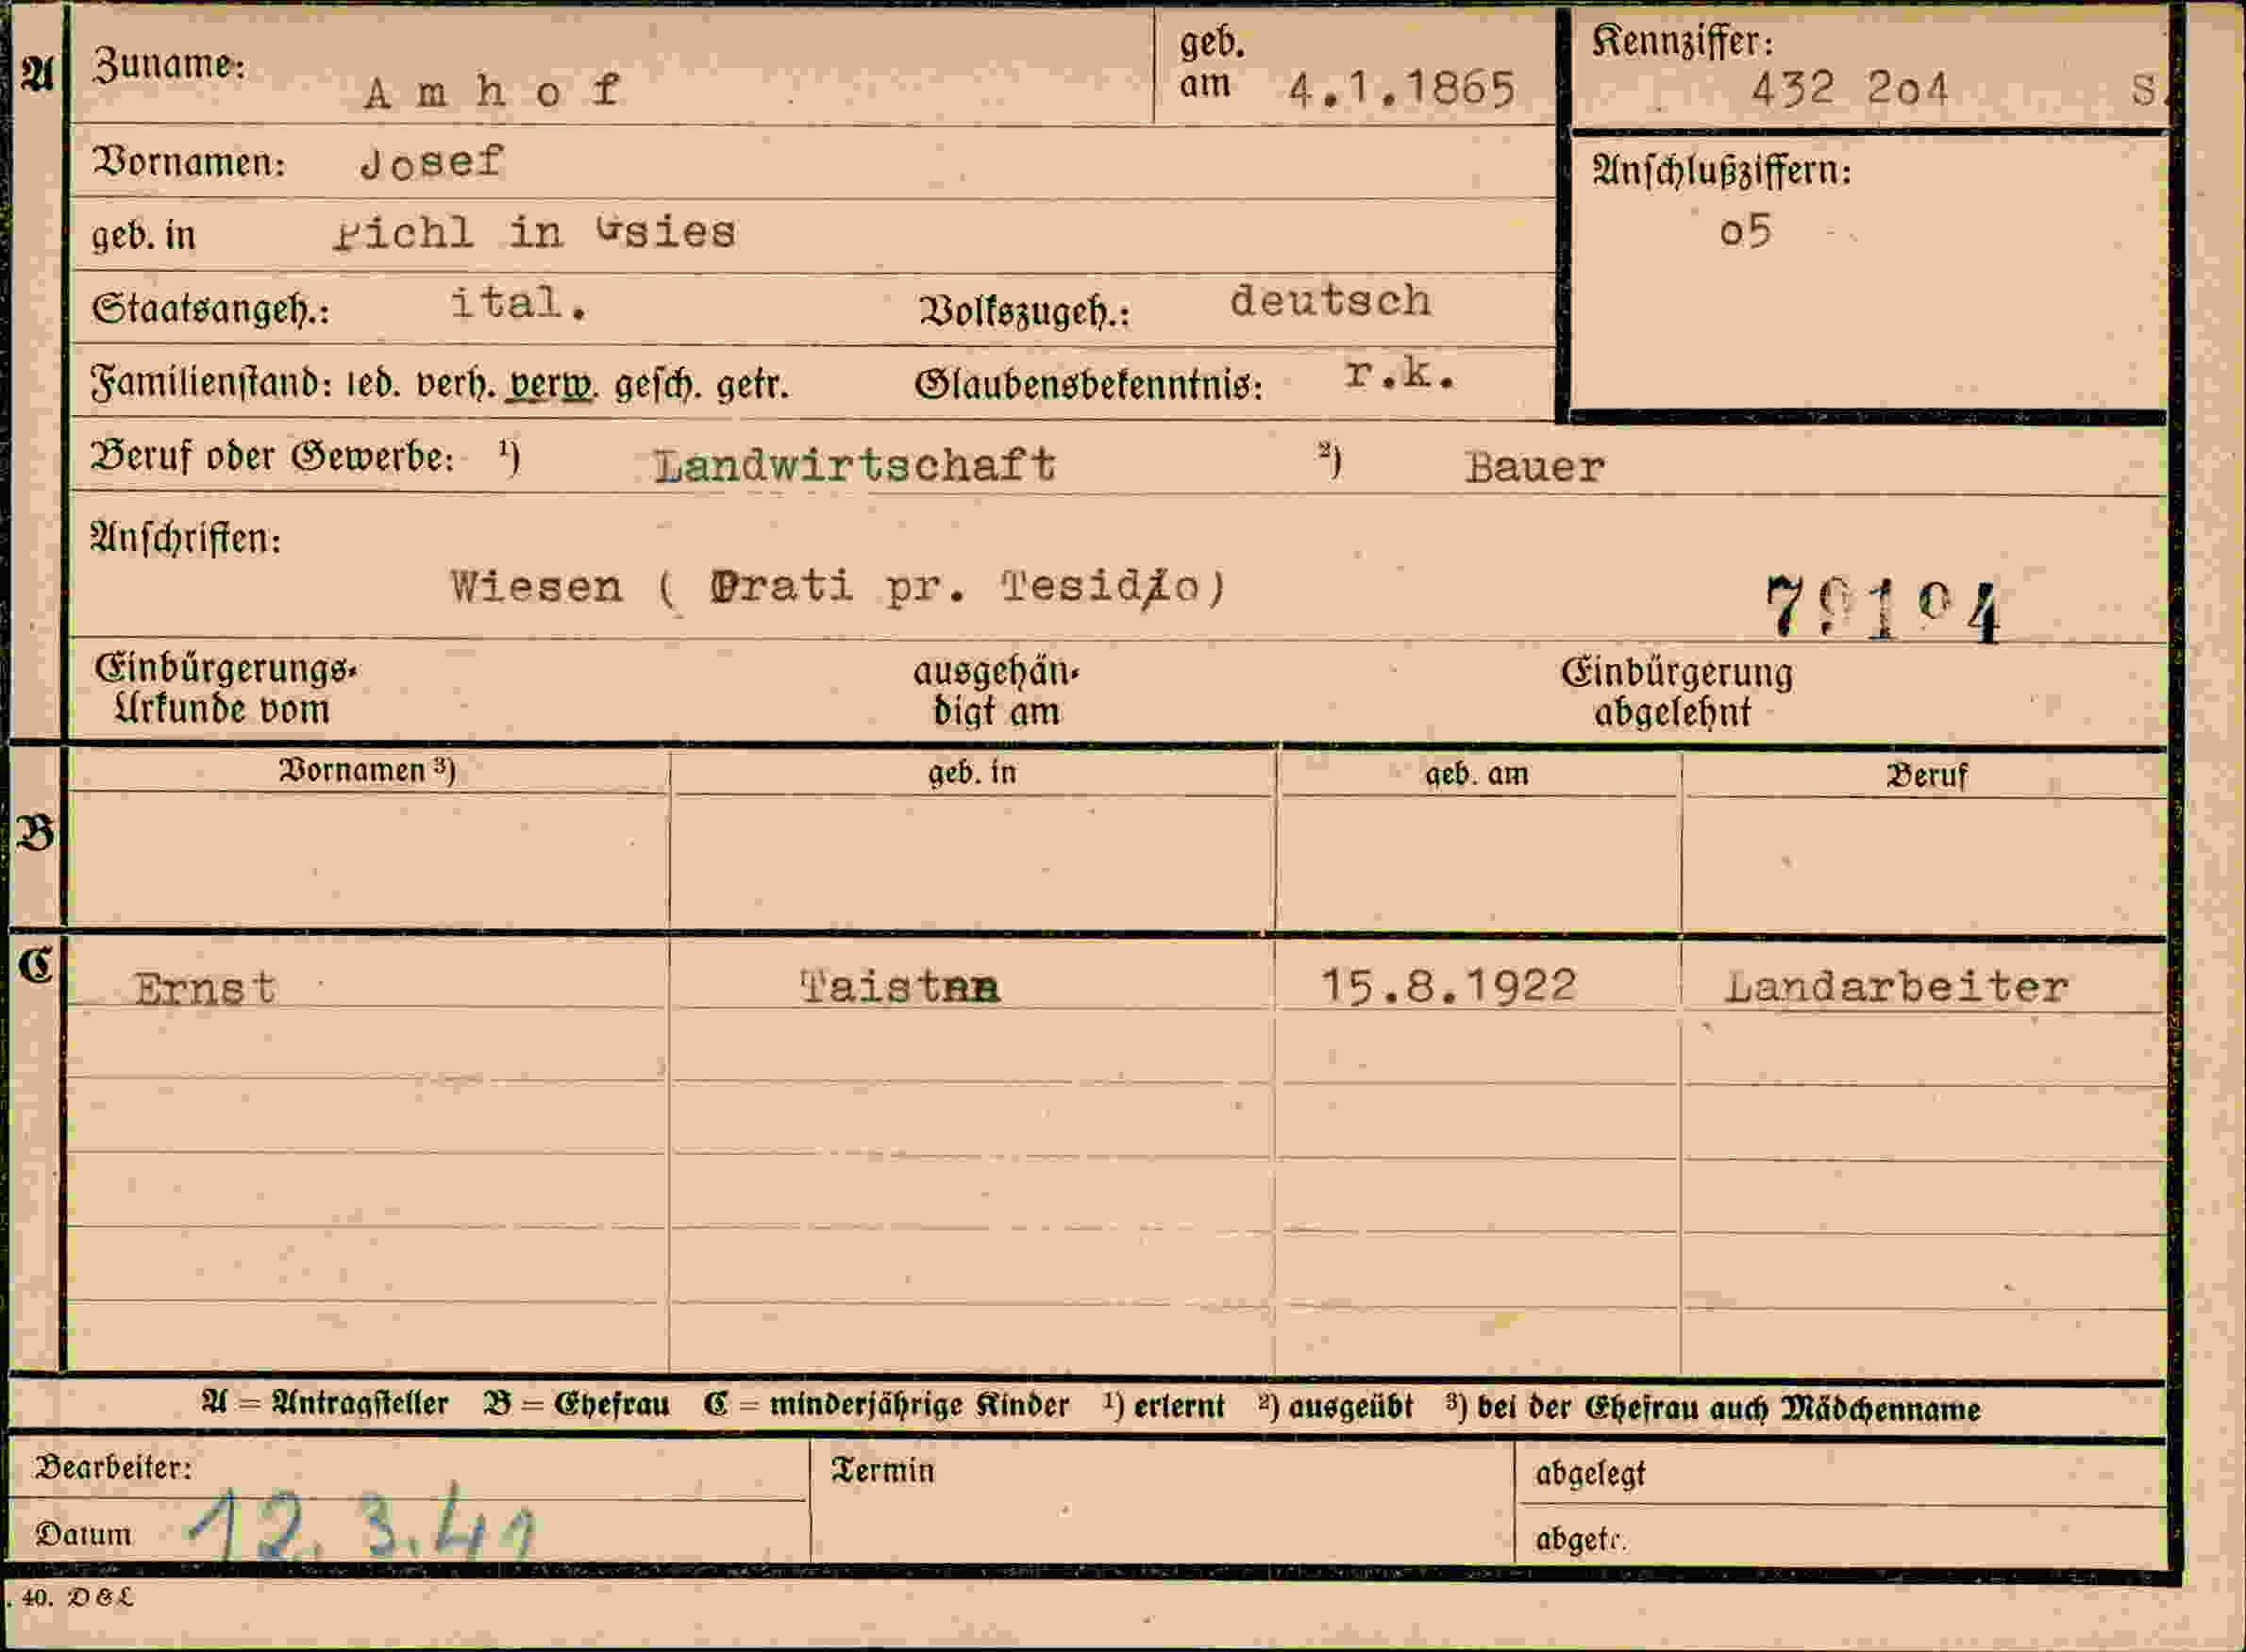 A Zuname: Amhof geb. am 4.1.1865 Kennziffer: 432 2o4 S.
Vornamen: Josef Anschlußziffern:
geb. in Pichl in Gsies o5
Staatsangeh.: ital. Volkszugeh.: deutsch
Familienstand: led. verh. verw. gesch. getr. Glaubensbekenntnis: r.k.
Beruf oder Gewerbe: ¹) Landwirtschaft ²) Bauer
Anschriften:
Wiesen ( Prati pr. Tesido)
Einbürgerungs- ausgehän- Einbürgerung
Urkunde vom digt am abgelehnt
Vornamen ³) geb. in geb. am Beruf
B
C Ernst Taisten 15.8.1922 Landarbeiter
A = Antragsteller B = Ehefrau C = minderjährige Kinder ¹) erlernt ²) ausgeübt ³) bei der Ehefrau auch Mädchenname
Bearbeiter: Termin abgelegt
Datum 12.3.41 abgetr.
. 40. D&L